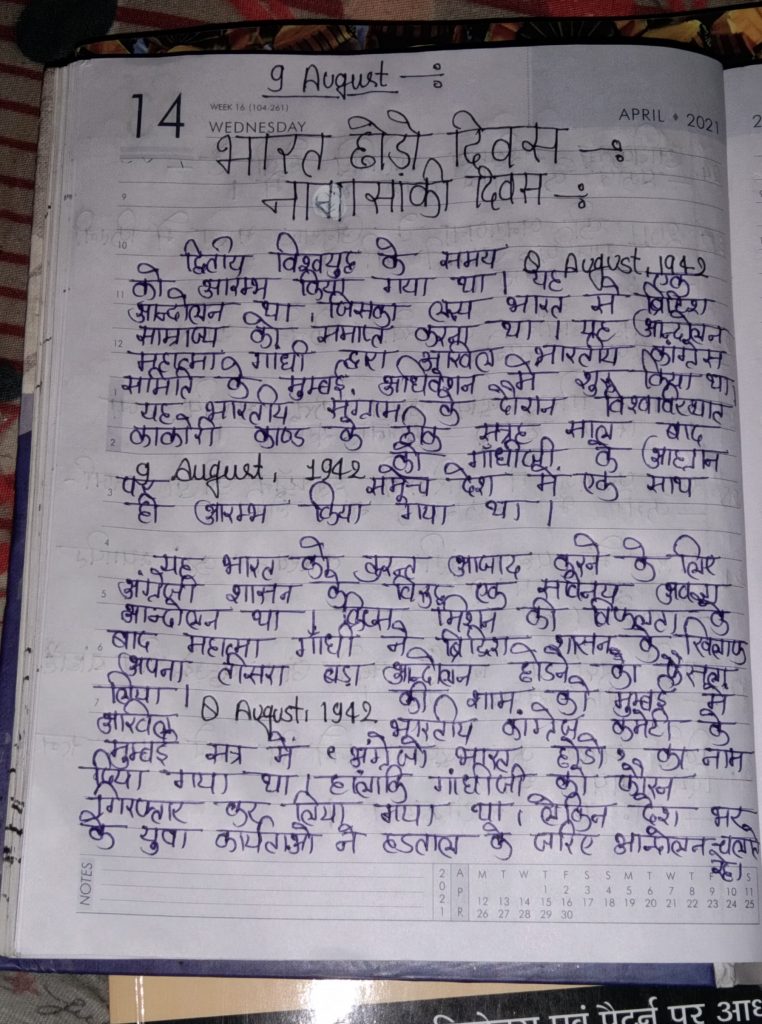 9 August -:
14
WEEK 16 (104-261)
WEDNESDAY
APRIL • 2021
भारत छोडो दिवस -:
नागासाकी दिवस -:
द्वितीय विश्वयुद्ध के समय 8 August, 1942
को आरम्भ किया गया था। यह एक
आन्दोलन था, जिसका लक्ष्य भारत से ब्रिटिश
साम्राज्य को समाप्त करना था। यह आन्दोलन
महात्मा गांधी द्वारा अखिल भारतीय कांग्रेस
समिति के मुम्बई अधिवेशन में शुरू किया था
यह भारतीय के दौरान विश्वविख्यात
काकोरी काण्ड के ठीक सत्रह साल बाद
9 August, 1942 को गाँधीजी के आह्वान
पर समूचे देश में एक साथ
ही आरम्भ किया गया था।
यह भारत को तुरन्त आजाद करने के लिए
अंग्रेजी शासन के विरुद्ध एक सविनय अवज्ञा
आन्दोलन था। क्रिप्स मिशन की विफलता के
बाद महात्मा गाँधी ने ब्रिटिश शासन के खिलाफ
अपना तीसरा बड़ा आन्दोलन छोडने का फैसला
लिया। 8 August, 1942 की शाम को मुम्बई में
अखिल भारतीय कांग्रेस कमेटी के
मुम्बई सत्र में 'अंग्रेजो भारत छोडो' का नाम
दिया गया था। हालांकि गांधीजी को फौरन
गिरफ्तार कर लिया गया था। लेकिन देश भर
के युवा कार्यताओ ने हडताल के जरिए आन्दोलन चलाते
रहे।
NOTES
2021 APR
M T W T F S S M T W T F S
1 2 3 4 5 6 7 8 9 10 11
12 13 14 15 16 17 18 19 20 21 22 23 24 25
26 27 28 29 30
एवं पैटर्न पर आध